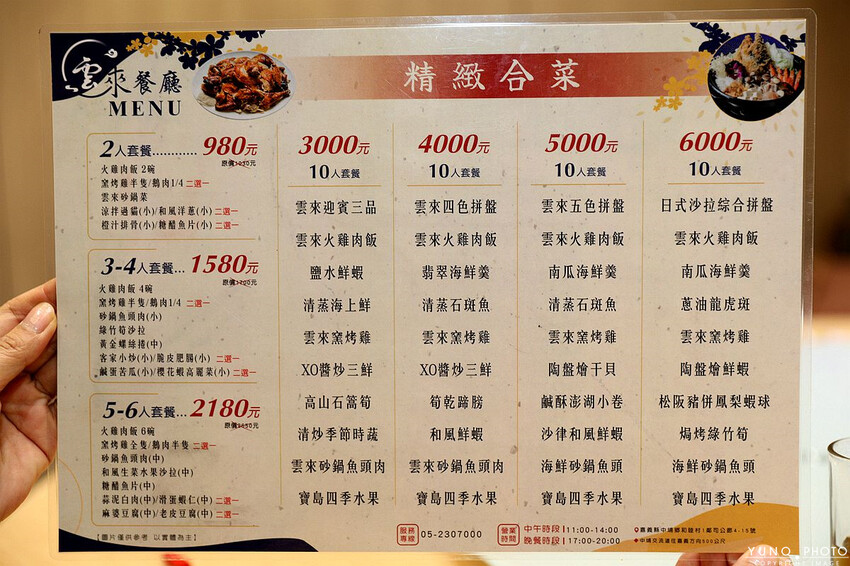 雲來餐廳
MENU
精緻合菜
2人套餐............980元
火雞肉飯 2碗
窯烤雞半隻/鵝肉1/4 二選一
雲來砂鍋菜
涼拌過貓(小)/和風洋蔥(小) 二選一
橙汁排骨(小)/糖醋魚片(小) 二選一
3-4人套餐...1580元
火雞肉飯 4碗
窯烤雞半隻/鵝肉1/4 二選一
砂鍋魚頭肉(小)
綠竹筍沙拉
黃金螺絲捲(中)
客家小炒(小)/脆皮肥腸(小) 二選一
鹹蛋苦瓜(小)/櫻花蝦高麗菜(小) 二選一
5-6人套餐...2180元
火雞肉飯 6碗
窯烤雞全隻/鵝肉半隻 二選一
砂鍋魚頭肉(中)
和風生菜水果沙拉(中)
糖醋魚片(中)
蒜泥白肉(中)/滑蛋蝦仁(中) 二選一
麻婆豆腐(中)/老皮豆腐(中) 二選一
【圖片僅供參考 以實體為主】
3000元
10人套餐
雲來迎賓三品
雲來火雞肉飯
鹽水鮮蝦
清蒸海上鮮
雲來窯烤雞
XO醬炒三鮮
高山石蒿筍
清炒季節時蔬
雲來砂鍋魚頭肉
寶島四季水果
4000元
10人套餐
雲來四色拼盤
雲來火雞肉飯
翡翠海鮮羹
清蒸石斑魚
雲來窯烤雞
XO醬炒三鮮
筍乾蹄膀
和風鮮蝦
雲來砂鍋魚頭肉
寶島四季水果
5000元
10人套餐
雲來五色拼盤
雲來火雞肉飯
南瓜海鮮羹
清蒸石斑魚
雲來窯烤雞
陶盤燴干貝
鹹酥澎湖小卷
沙律和風鮮蝦
海鮮砂鍋魚頭
寶島四季水果
6000元
10人套餐
日式沙拉綜合拼盤
雲來火雞肉飯
南瓜海鮮羹
蔥油龍虎斑
雲來窯烤雞
陶盤燴鮮蝦
松阪豬併鳳梨蝦球
焗烤綠竹筍
海鮮砂鍋魚頭
寶島四季水果
服務專線 05-2307000
營業時間 中午時段 11:00-14:00
晚餐時段 17:00-20:00
嘉義縣中埔鄉和睦村1鄰司公廍4-15號
中埔交流道往嘉義方向500公尺
YUNO PHOTO
COPYRIGHT IMAGE